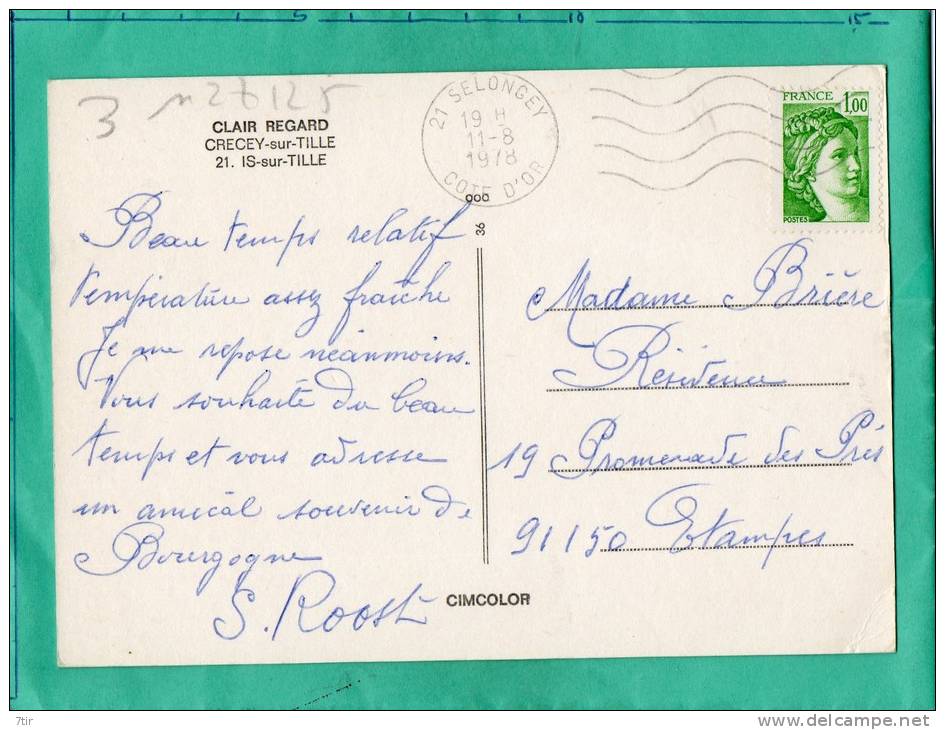 5 10 15
3 n 26125
CLAIR REGARD
CRECEY-sur-TILLE
21. IS-sur-TILLE
21 SELONGEY
19 H
11-8
1978
COTE D'OR
FRANCE
1,00
POSTES
000
36
Beau temps relatif
température assez fraîche
Je me repose néanmoins.
Vous souhaite du beau
temps et vous adresse
un amical souvenir de
Bourgogne
S. Roost
Madame Brière
Résidence
19 Promenade des Prés
91150 Etampes
CIMCOLOR
7tir
www.delcampe.net